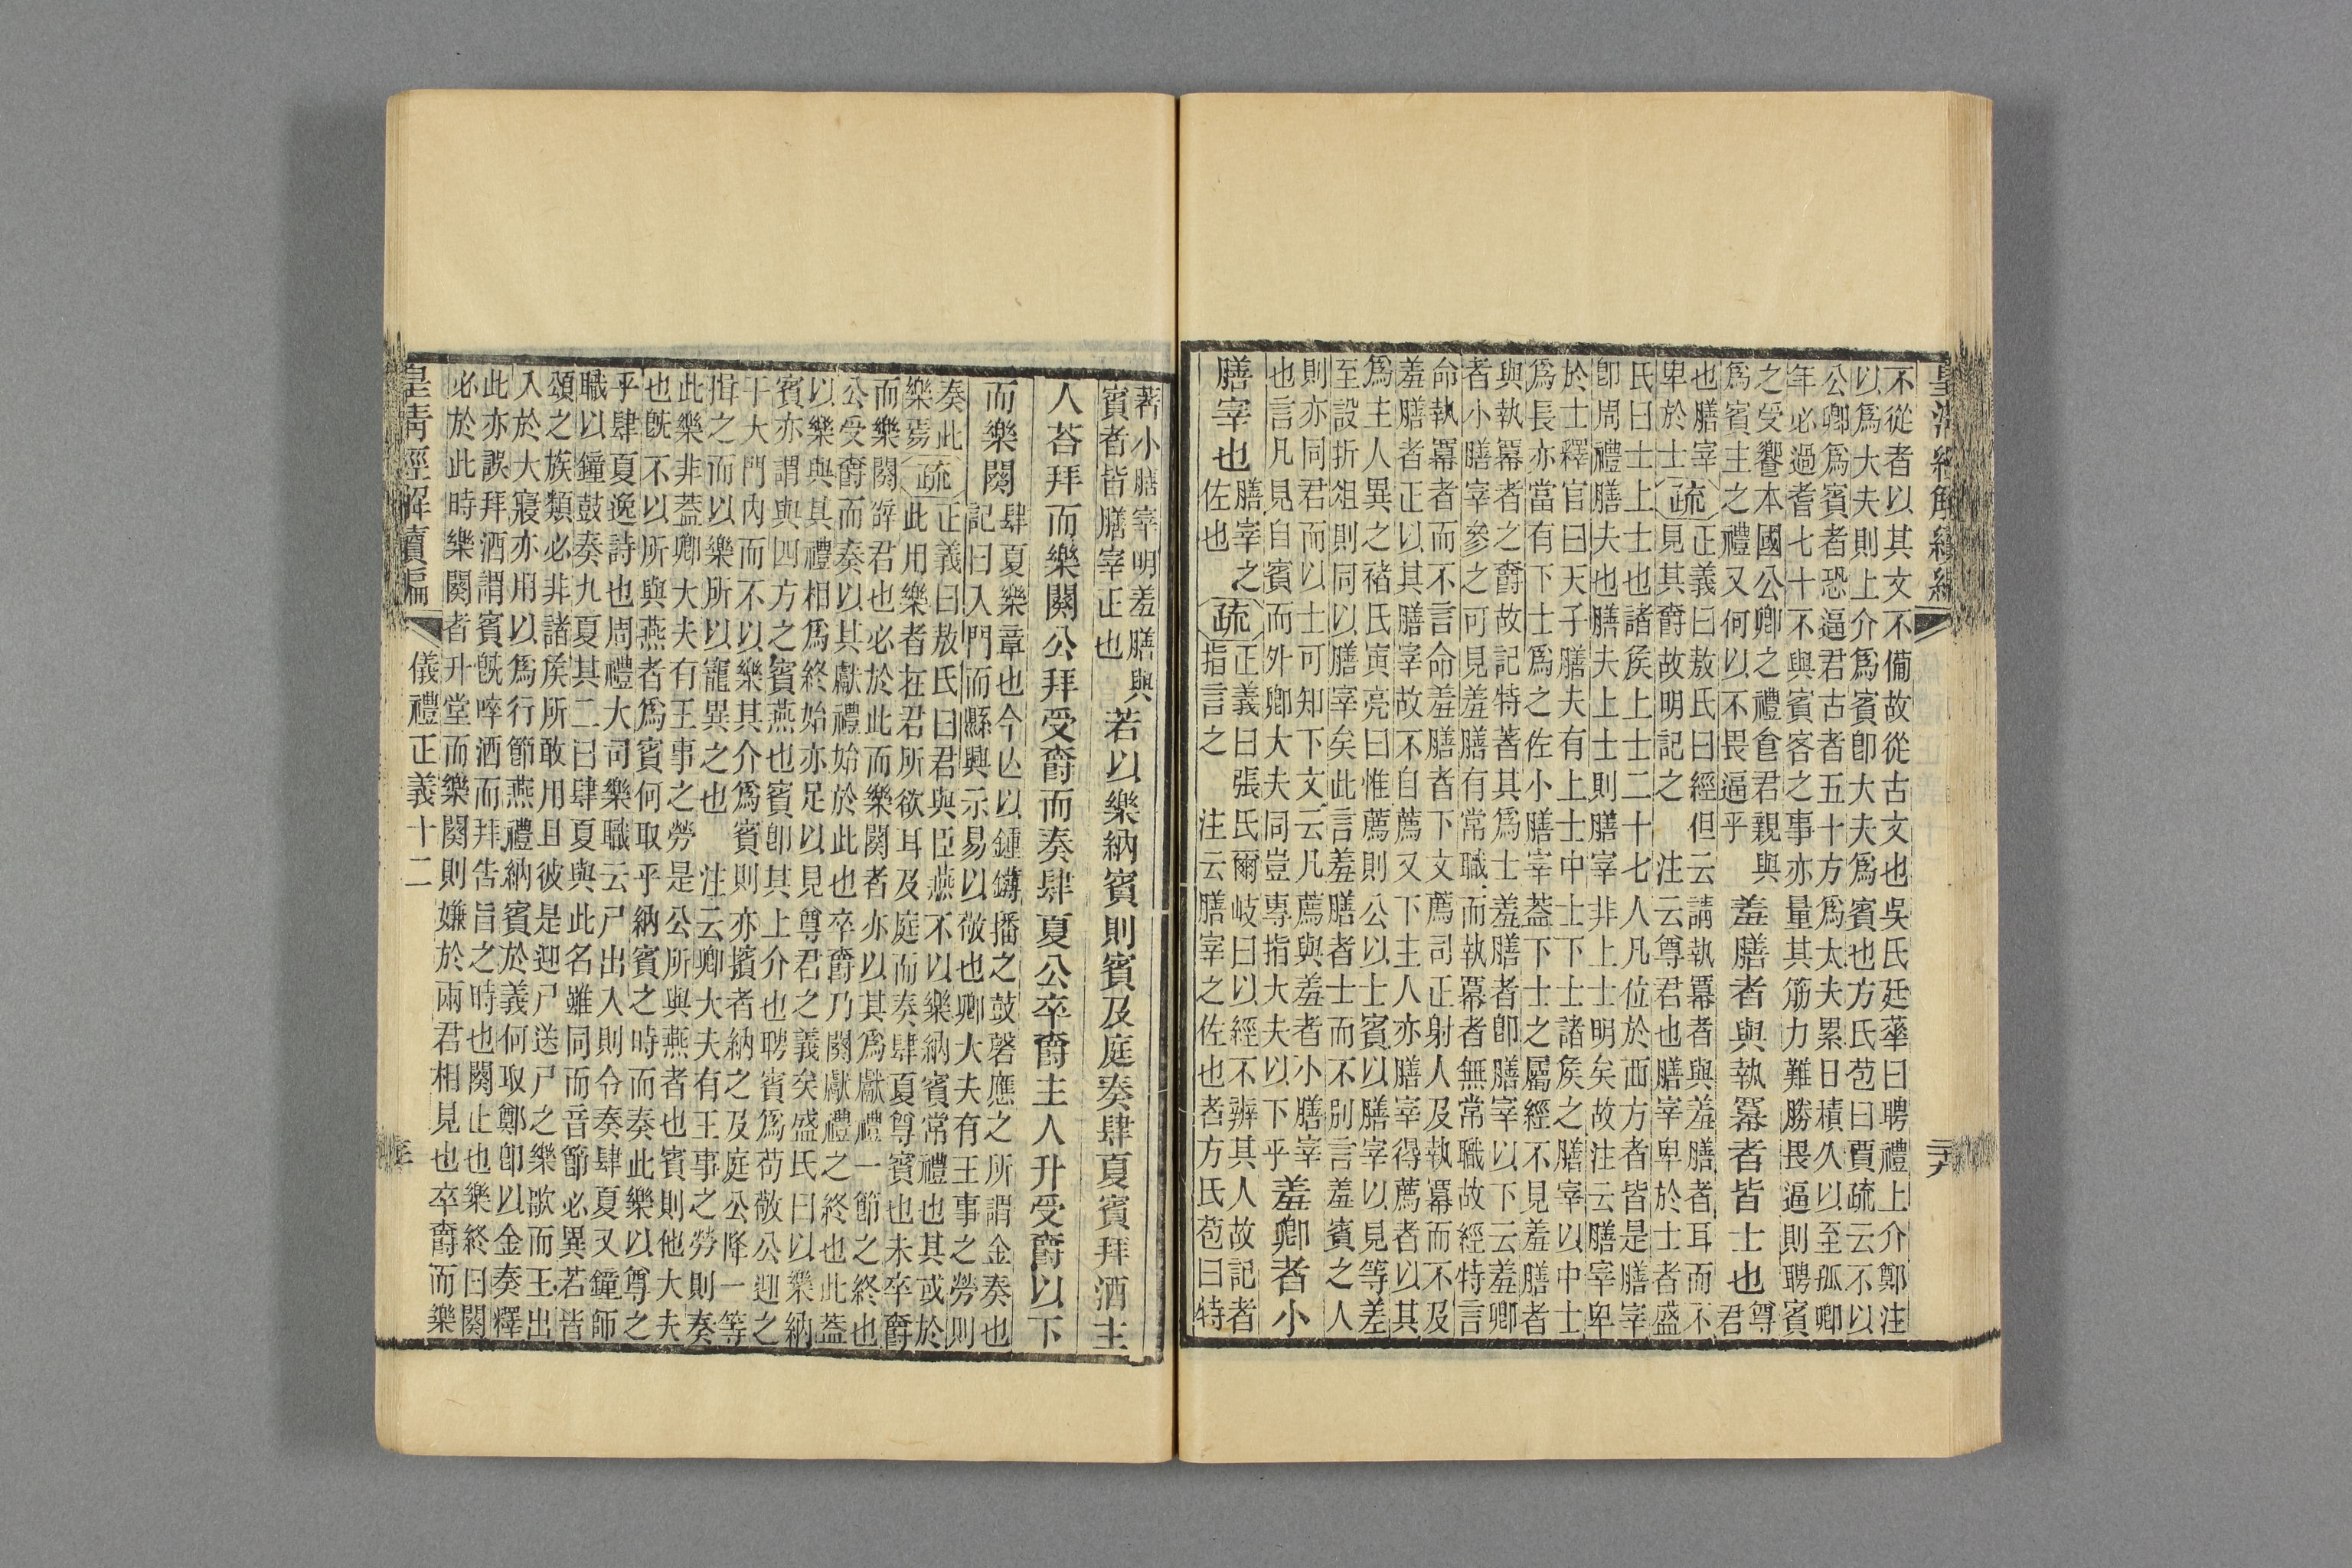 不從者以其文不僃故從古文也吳氏廷華曰聘禮上介鄭注
以爲大夫則上介爲賓卽大夫爲賓也方氏苞曰賈疏云不以
公卿爲賓者恐逼君古者五十方爲大夫累日積久以至孤卿
年必過耆七十不與賓客之事亦量其筋力難勝畏逼則聘賓
之受饗本國公卿之禮食君親與
爲賓主之禮又何以不畏逼乎
羞膳者與執冪者皆士也
尊
君
也膳宰
卑於士
疏
正義曰敖氏曰經但云請執冪者與羞膳者耳而不
見其爵故明記之　注云尊君也膳宰卑於士者盛
氏曰士上士也諸矦上士二十七人凡位於西方者皆是膳宰
卽周禮膳夫也膳夫上士則膳宰非上士明矣故注云膳宰卑
於士釋官曰天子膳夫有上士中士下士諸矦之膳宰以中士
爲長亦當有下士爲之佐小膳宰葢下士之屬經不見羞膳者
與執冪者之爵故記特著其爲士羞膳者卽膳宰以下云羞卿
者小膳宰參之可見羞膳有常職而執冪者無常職故經特言
命執冪者而不言命羞膳者下文薦司正射人及執冪而不及
羞膳者正以其膳宰故不自薦又下主人亦膳宰得薦者以其
爲主人異之褚氏寅亮曰惟薦則公以士賓以膳宰以見等差
至設折俎則同以膳宰矣此言羞膳者士而不別言羞賓之人
則亦同君而以士可知下文云凡薦與羞者小膳宰
也言凡見自賓而外卿大夫同豈專指大夫以下乎
羞卿者小
膳宰也
膳宰之
佐也
疏
正義曰張氏爾岐曰以經不辨其人故記者
指言之　注云膳宰之佐也者方氏苞曰特
著小膳宰明羞膳與
賓者皆膳宰正也
若以樂納賓則賓及庭奏肆夏賓拜酒主
人荅拜而樂闋公拜受爵而奏肆夏公卒爵主人升受爵以下
而樂闋
肆夏樂章也今亾以鍾鑮播之鼓磬應之所謂金奏也
記曰入門而縣興示易以敬也卿大夫有王事之勞則
奏此
樂焉
疏
正義曰敖氏曰君與臣燕不以樂納賓常禮也其或於
此用樂者在君所欲耳及庭而奏肆夏尊賓也未卒爵
而樂闋辭君也必於此而樂闋者亦以其爲獻禮一節之終也
公受爵而奏以其獻禮始於此也卒爵乃闋獻禮之終也此葢
以樂與其禮相爲終始亦足以見尊君之義矣盛氏曰以樂納
賓亦謂與四方之賓燕也賓卽其上介也聘賓爲苟敬公迎之
于大門內而不以樂其介爲賓則亦擯者納之及庭公降一等
揖之而以樂所以寵異之也　注云卿大夫有王事之勞則奏
此樂非葢卿大夫有王事之勞是公所與燕者也賓則他大夫
也旣不以所與燕者爲賓何取乎納賓之時而奏此樂以尊之
乎肆夏逸詩也周禮大司樂職云尸出入則令奏肆夏又鐘師
職以鐘鼓奏九夏其二曰肆夏與此名雖同而音節必異若皆
頌之族類必非諸矦所敢用且彼是迎尸送尸之樂歌而王出
入於大寢亦用以爲行節燕禮納賓於義何取鄭卽以金奏釋
此亦誤拜酒謂賓旣啐酒而拜告旨之時也闋止也樂終曰闋
必於此時樂闋者升堂而樂闋則嫌於兩君相見也卒爵而樂
皇淸經解續編
儀禮正義十二